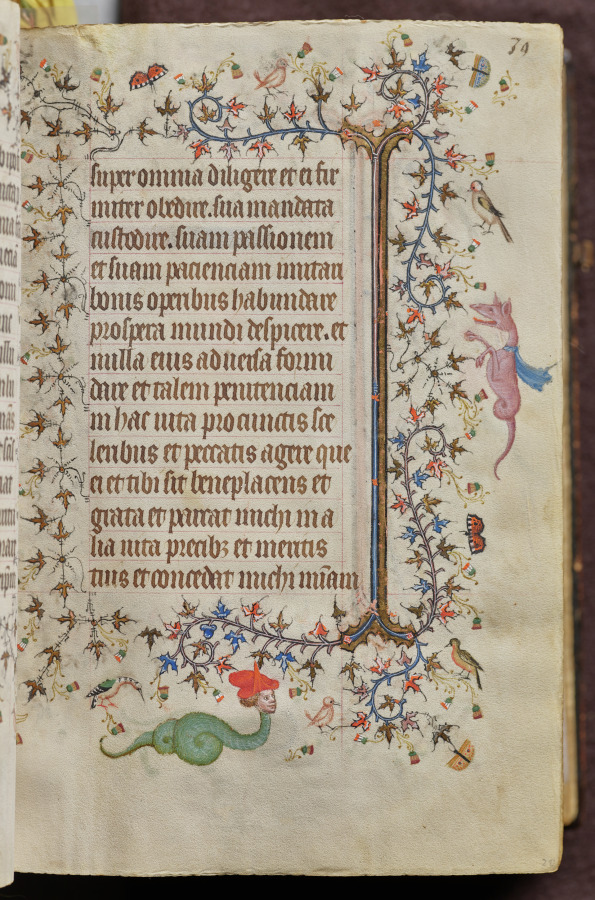 79
super omnia diligere et ei fir
miter obedire. sua mandata
custodire. suam passionem
et suam pacienciam imitari
bonis operibus habundare
prospera mundi despicere. et
nulla eius aduersa formi
dare et talem penitenciam
in hac uita pro cunctis sce
leribus et peccatis agere que
ei et tibi sit beneplacens et
grata et pareat michi in a
lia uita precibꝫ et meritis
tuis et concedat michi miam